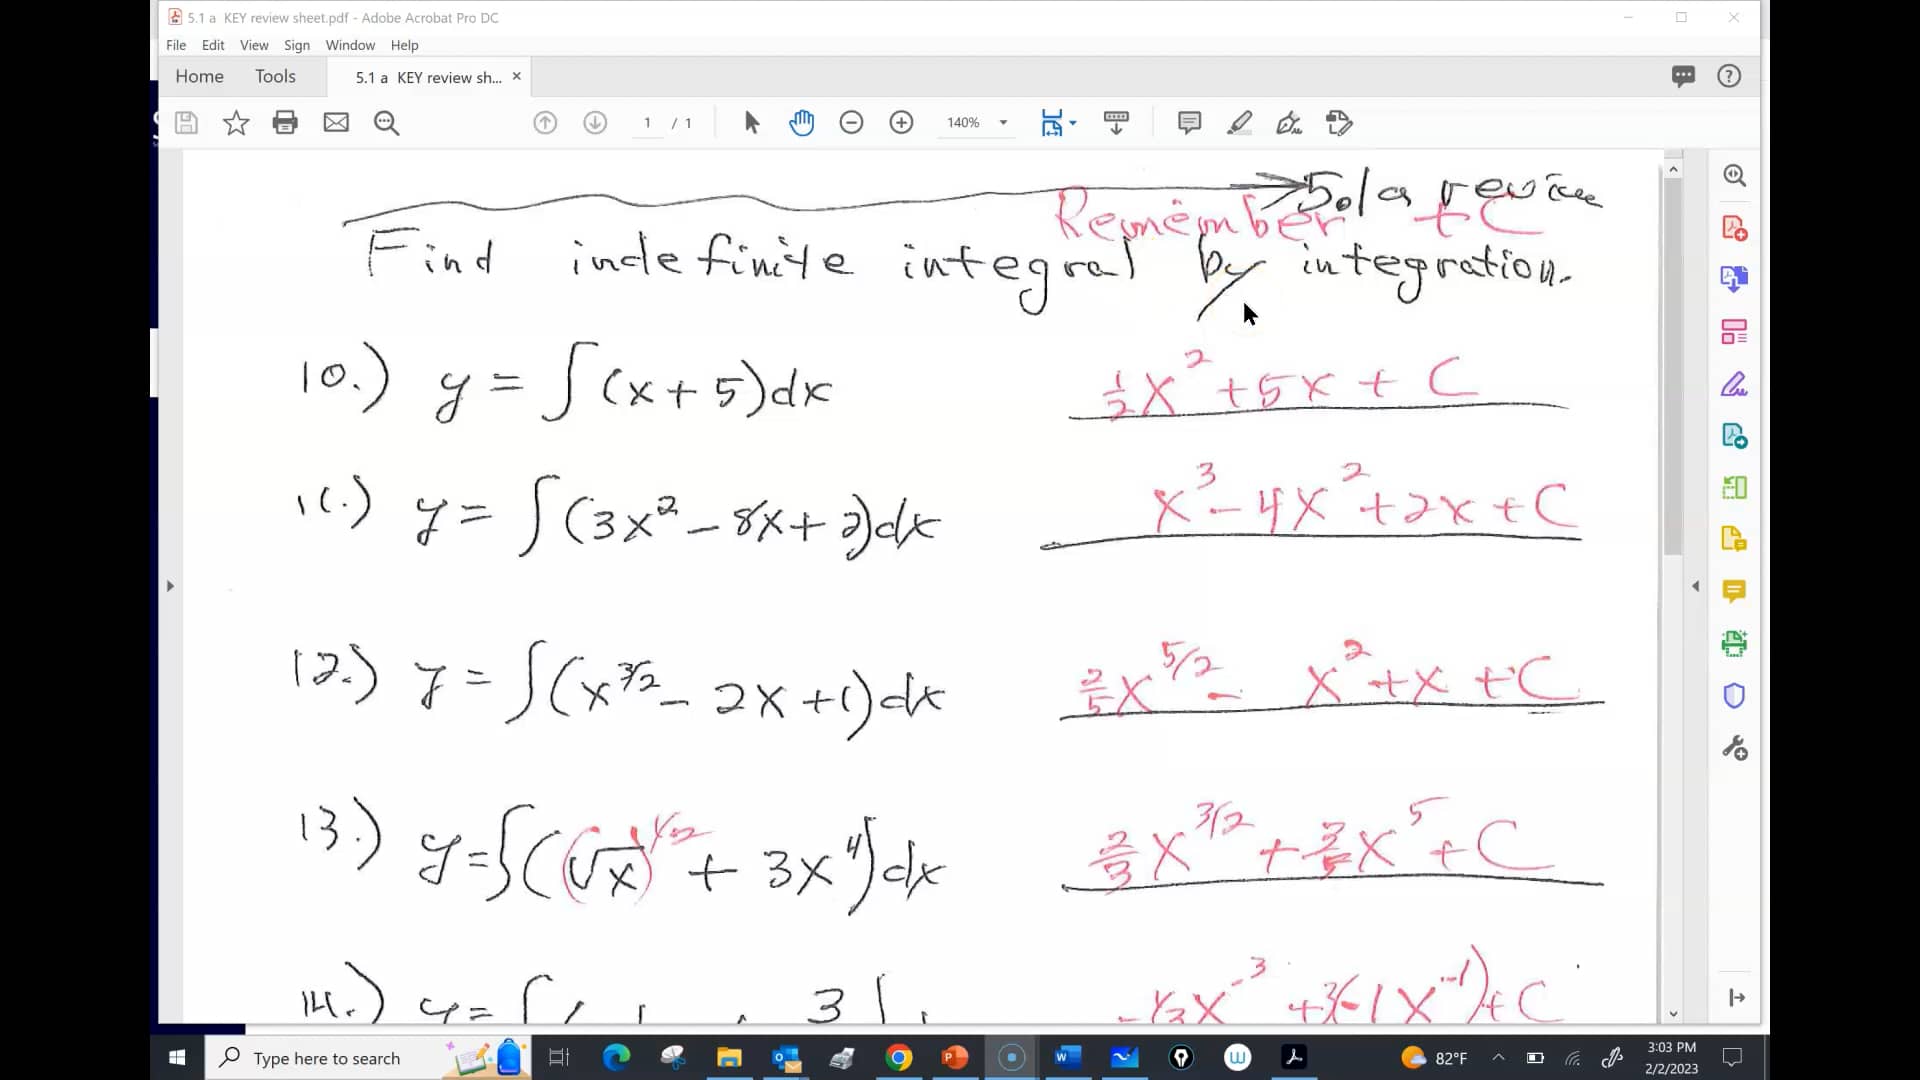 5.1 a KEY review sheet.pdf - Adobe Acrobat Pro DC
File Edit View Sign Window Help
Home Tools 5.1 a KEY review sh... ×
1 / 1 140%
5.1a review
Remember +C
Find indefinite integral by integration.
10.) y = ∫(x + 5)dx ½x² + 5x + C
11.) y = ∫(3x² - 8x + 2)dx x³ - 4x² + 2x + C
12.) y = ∫(x^3/2 - 2x + 1)dx 2/5 x^5/2 - x² + x + C
13.) y = ∫((√x)^1/2 + 3x⁴)dx 2/3 x^3/2 + 3/5 x⁵ + C
14.) y = ∫( 3 -1/3 x⁻³ + 3(-1x⁻¹) + C
Type here to search 82°F 3:03 PM
2/2/2023